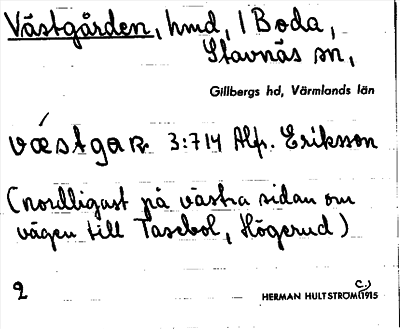 Västgården, hmd, i Boda,
Stavnäs sn,
Gillbergs hd, Värmlands län
væ´stgaṛ. 3:714 Alfr. Eriksson
(nordligast på västra sidan om
vägen till Tasebol, Högerud)
2
HERMAN HULTSTRÖM (c.) 1915